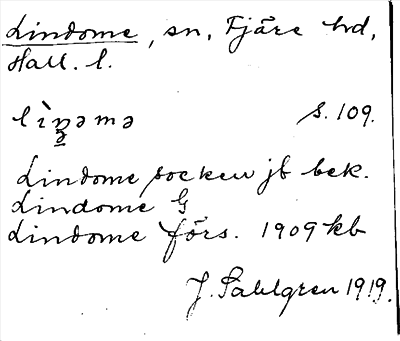 Lindome, sn, Fjäre hd,
Hall. l.
s. 109.
Lindome socken jb bek.
Lindome G
Lindome förs. 1909 kb
J. Sahlgren 1919.